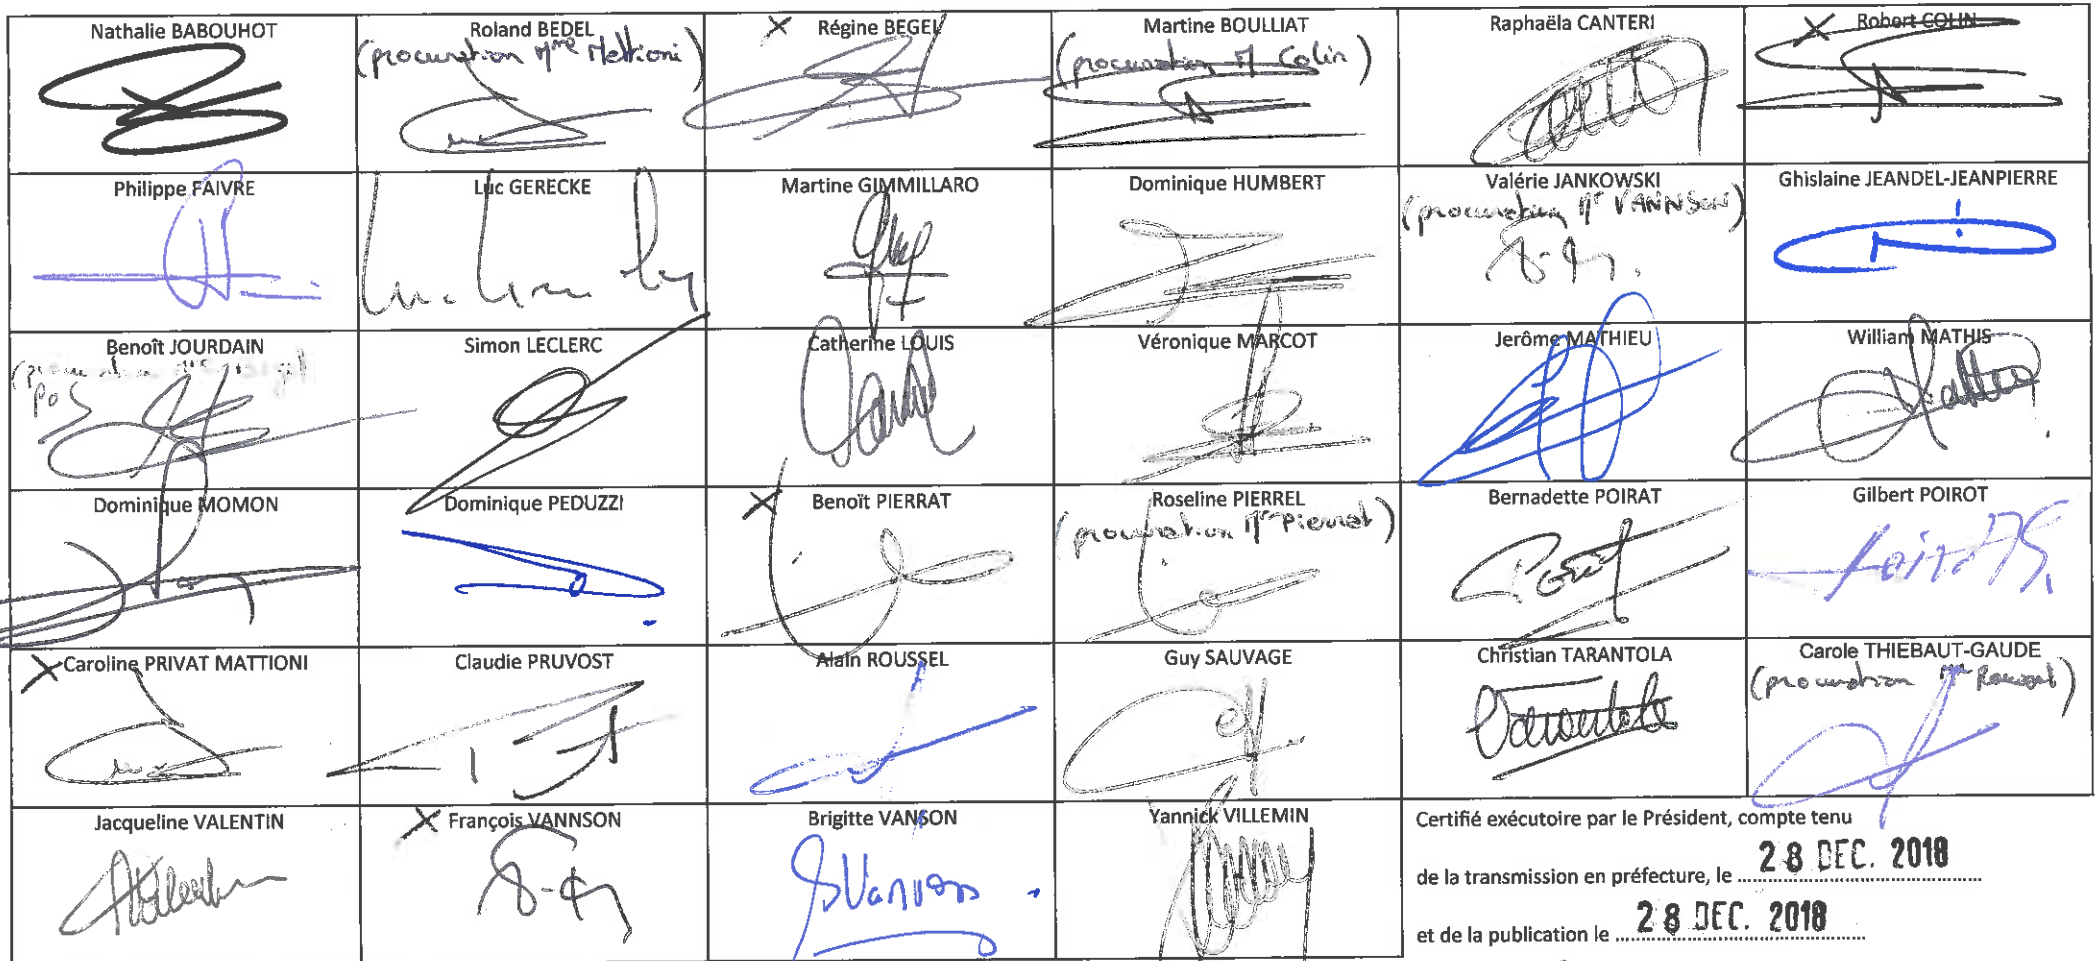 Nathalie BABOUHOT
Roland BEDEL
(procuration Mme Mattioni)
X Régine BEGEL
Martine BOULLIAT
(procuration M Colin)
Raphaëla CANTERI
X Robert COLIN
Philippe FAIVRE
Luc GERECKE
Martine GIMMILLARO
Dominique HUMBERT
Valérie JANKOWSKI
(procuration Mr VANNSON)
Ghislaine JEANDEL-JEANPIERRE
Benoît JOURDAIN
(procuration
Simon LECLERC
Catherine LOUIS
Véronique MARCOT
Jerôme MATHIEU
William MATHIS
Dominique MOMON
Dominique PEDUZZI
X Benoît PIERRAT
Roseline PIERREL
(procuration Mr Pierrat)
Bernadette POIRAT
Gilbert POIROT
X Caroline PRIVAT MATTIONI
Claudie PRUVOST
Alain ROUSSEL
Guy SAUVAGE
Christian TARANTOLA
Carole THIEBAUT-GAUDE
(procuration
Jacqueline VALENTIN
X François VANNSON
Brigitte VANSON
Yannick VILLEMIN
Certifié exécutoire par le Président, compte tenu
de la transmission en préfecture, le 28 DEC. 2018
et de la publication le 28 DEC. 2018